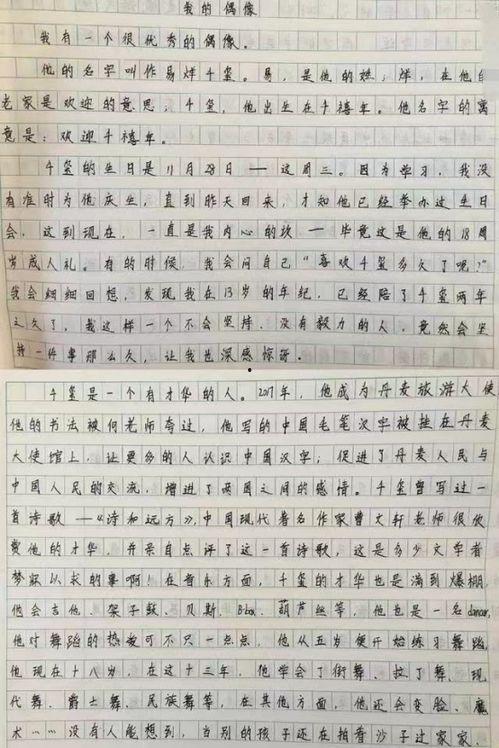 我的偶像
我有一个很优秀的偶像。
他的名字叫作易烊千玺。易，是他的姓；烊，在他的
老家是欢迎的意思；千玺，他出生在千禧年。他名字的寓
意是：欢迎千禧年。
千玺的生日是11月28日——这周三。因为学习，我没
有准时为他庆生，直到昨天回来，才知他已经举办过生日
会，这到现在，一直是我内心的坎——毕竟这是他的18周
岁成人礼。有的时候，我会问自己“喜欢千玺多久了呢？”
我会细细回想，发现我在13岁的年纪，已经陪了千玺两年
之久了，我这样一个不会坚持、没有毅力的人，竟然会坚
持一件事那么久，让我也深感惊讶。
千玺是一个有才华的人。2017年，他成为丹麦旅游大使
他的书法被何老师夸过，他写的中国毛笔汉字被挂在丹麦
大使馆上，让更多的人认识中国汉字；促进了丹麦人民与
中国人民的交流，增进了两国之间的感情。千玺曾写过一
首诗歌——《诗和远方》，中国现代著名作家曹文轩老师很欣
赏他的才华，并亲自点评了这一首诗歌，这是多少文学者
梦寐以求的事啊！在音乐方面，千玺的才华也是满到爆棚，
他会吉他、架子鼓、贝斯、B-box、葫芦丝等，他也是一名dancer，
他对舞蹈的热爱可不只一点点，他从五岁便开始练习舞蹈，
他现在十八岁，在这十三年，他学会了街舞、拉丁舞、现
代舞、爵士舞、民族舞等，在其他方面，他还会变脸、魔
术……没有人能想到，当别的孩子还在拍着沙子过家家